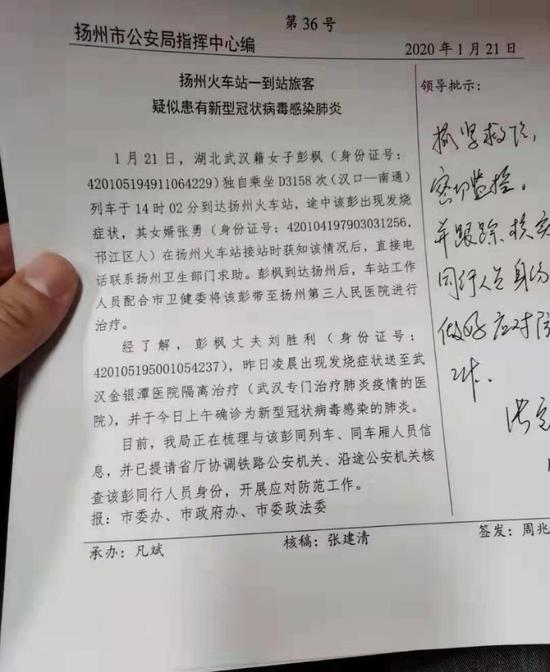 第 36 号
扬州市公安局指挥中心编
2020 年 1 月 21 日
扬州火车站一到站旅客
疑似患有新型冠状病毒感染肺炎
1 月 21 日，湖北武汉籍女子彭枫（身份证号：
420105194911064229）独自乘坐 D3158 次（汉口—南通）
列车于 14 时 02 分到达扬州火车站，途中该彭出现发烧
症状，其女婿张勇（身份证号：420104197903031256，
邗江区人）在扬州火车站接站时获知该情况后，直接电
话联系扬州卫生部门求助。彭枫到达扬州后，车站工作
人员配合市卫健委将该彭带至扬州第三人民医院进行
治疗。
经了解，彭枫丈夫刘胜利（身份证号：
420105195001054237），昨日凌晨出现发烧症状送至武
汉金银潭医院隔离治疗（武汉专门治疗肺炎疫情的医
院），并于今日上午确诊为新型冠状病毒感染的肺炎。
目前，我局正在梳理与该彭同列车、同车厢人员信
息，并已提请省厅协调铁路公安机关、沿途公安机关核
查该彭同行人员身份，开展应对防范工作。
报：市委办、市政府办、市委政法委
承办：凡斌
核稿：张建清
签发：周兆
领导批示：
抓紧救治，
密切监控。
并跟踪核实
同行人员身份
做好应对防
工作.